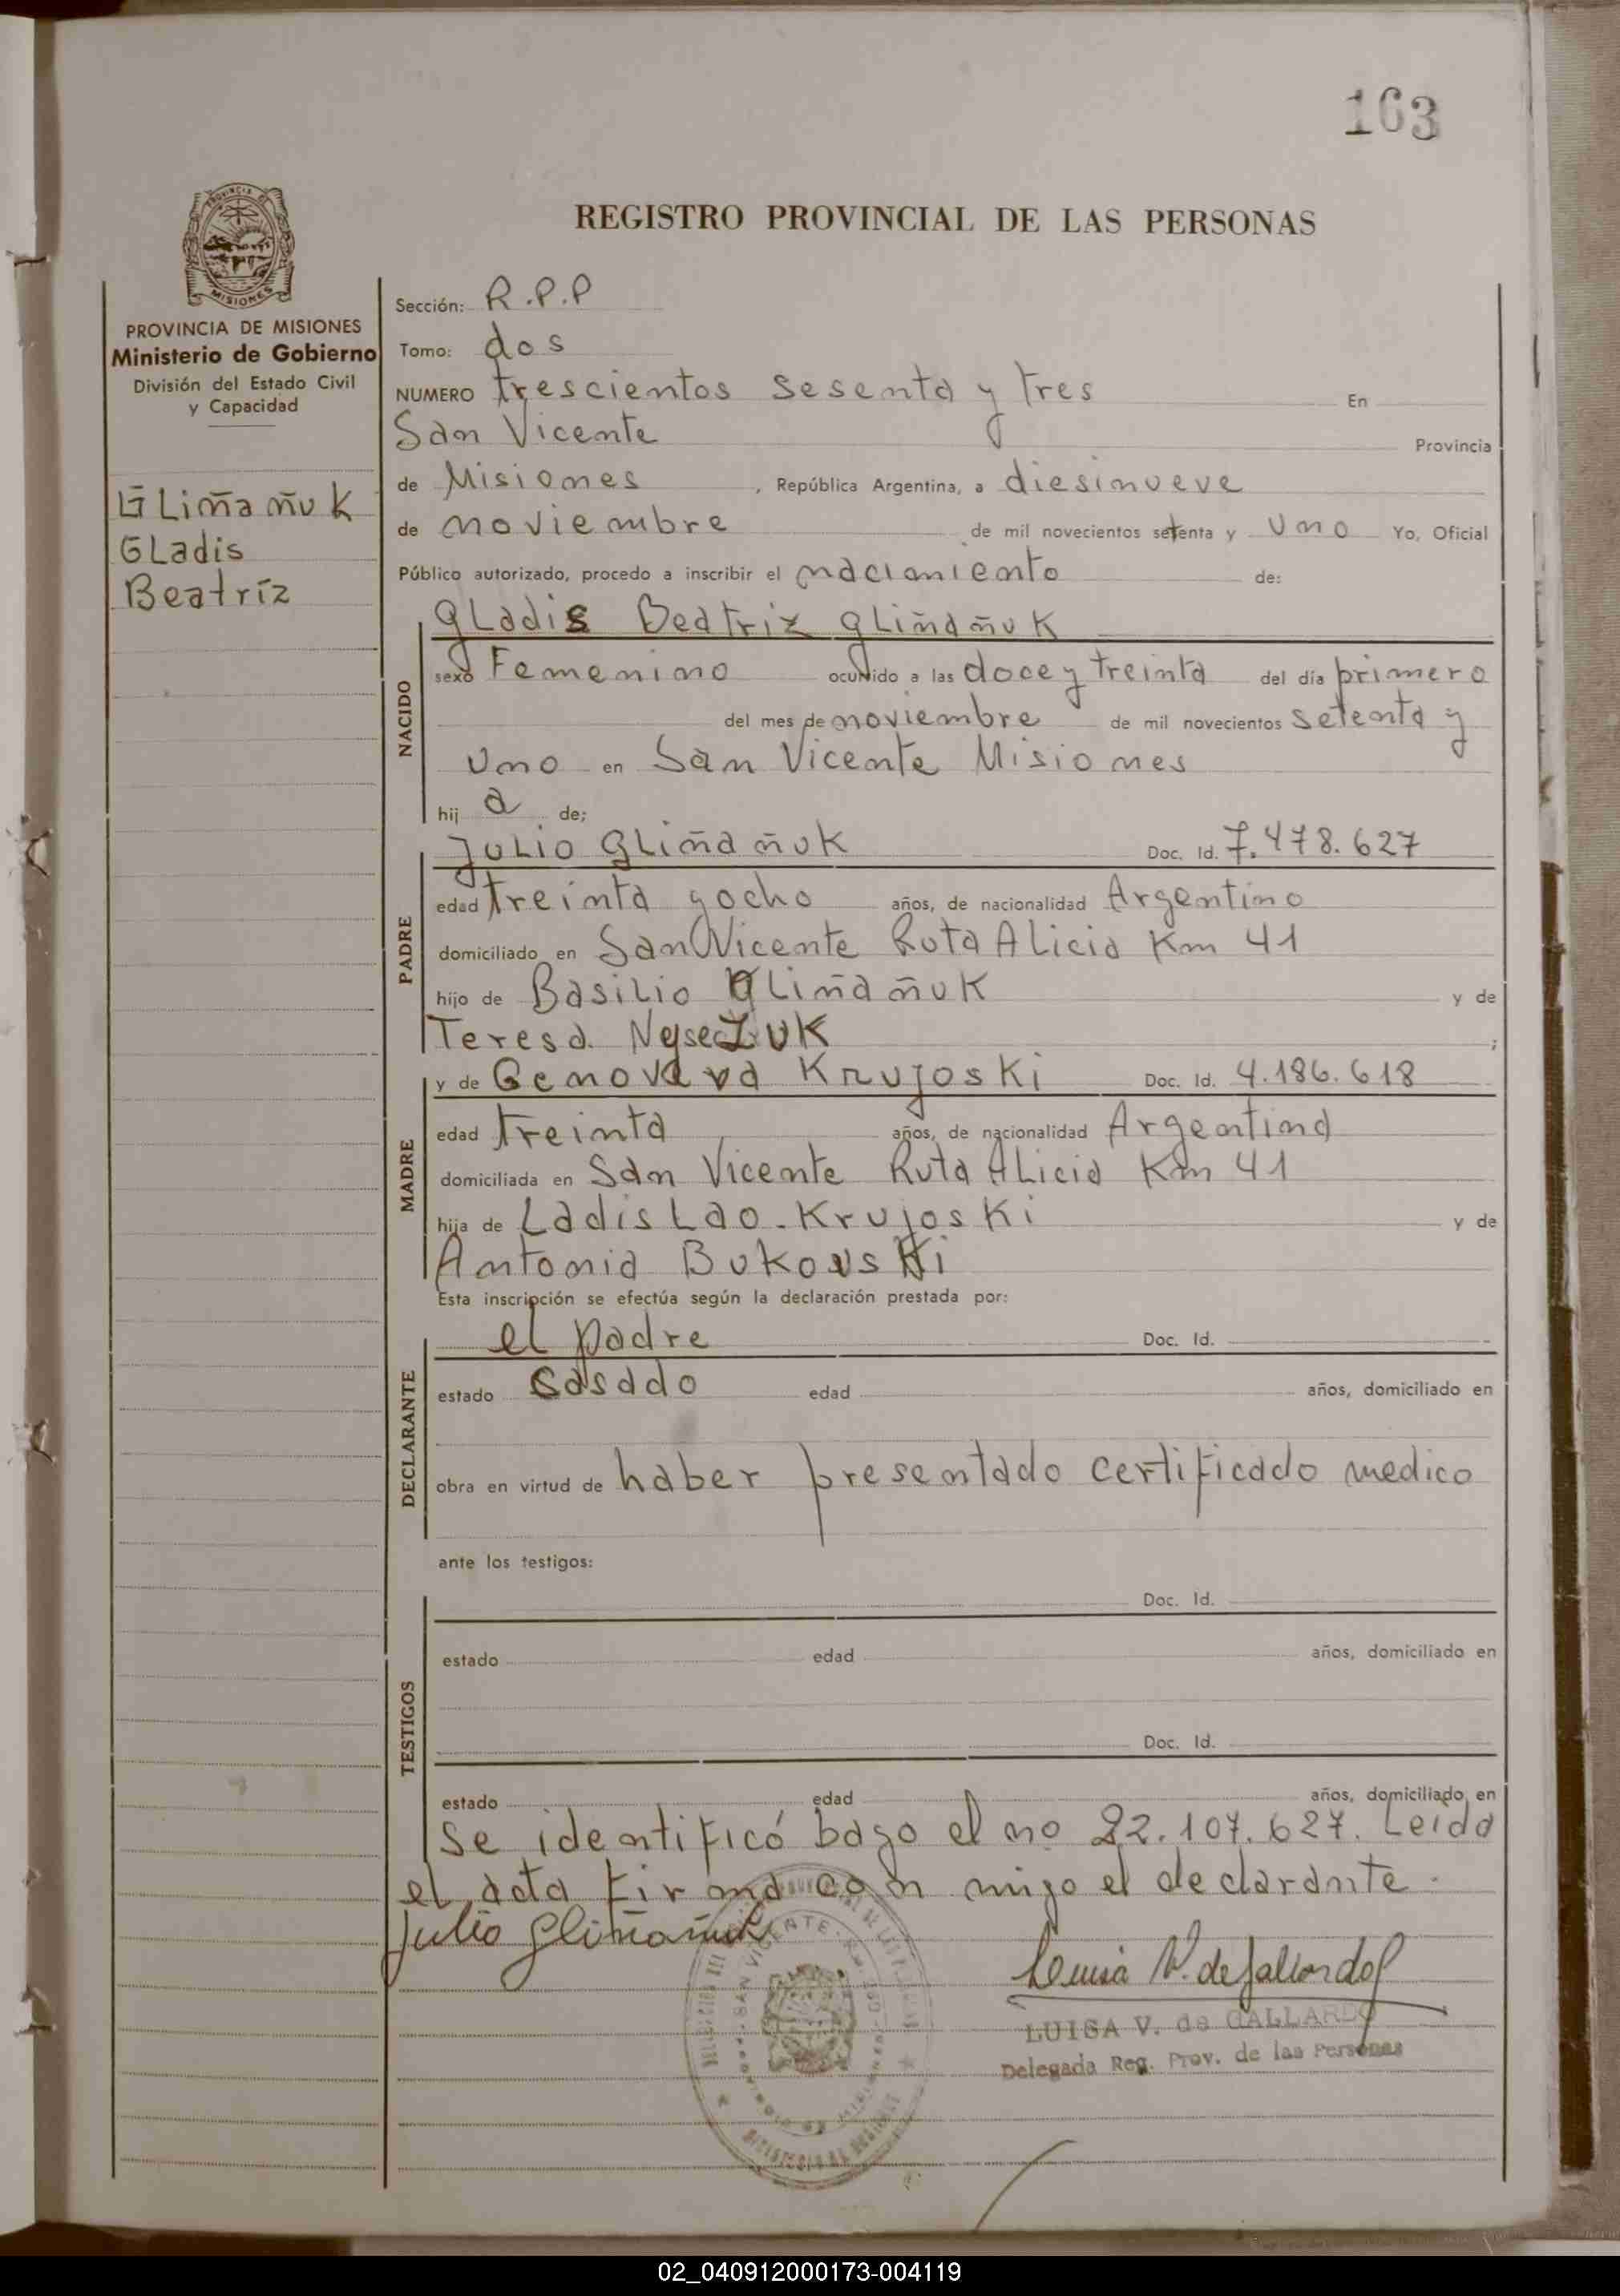 163
REGISTRO PROVINCIAL DE LAS PERSONAS
PROVINCIA DE MISIONES
Ministerio de Gobierno
División del Estado Civil
y Capacidad
Gliñañuk
Gladis
Beatríz
Sección: R.P.P
Tomo: dos
NUMERO trescientos sesenta y tres En
San Vicente Provincia
de Misiones, República Argentina, a diesinueve
de noviembre de mil novecientos setenta y uno Yo, Oficial
Público autorizado, procedo a inscribir el nacimiento de:
NACIDO
Gladis Beatriz Gliñañuk
sexo Femenino ocurrido a las doce y treinta del día primero
del mes de noviembre de mil novecientos setenta y
uno en San Vicente Misiones
hija de;
PADRE
Julio Gliñañuk Doc. Id. 7.478.627
edad treinta y ocho años, de nacionalidad Argentino
domiciliado en San Vicente Ruta Alicia Km 41
hijo de Basilio Gliñañuk y de
Teresa ;
MADRE
y de Genoveva Krujoski Doc. Id. 4.186.618
edad treinta años, de nacionalidad Argentina
domiciliada en San Vicente Ruta Alicia Km 41
hija de Ladislao Krujoski y de
Antonia Bukovski
Esta inscripción se efectúa según la declaración prestada por:
DECLARANTE
el padre Doc. Id.
estado casado edad años, domiciliado en
obra en virtud de haber presentado certificado medico
ante los testigos:
TESTIGOS
Doc. Id.
estado edad años, domiciliado en
Doc. Id.
estado edad años, domiciliado en
se identificó bajo el no 22.107.627. Leida
el acta firma con migo el declarante.
Julio Gliñañuk
Luisa V. de Gallardo
LUISA V. de GALLARDO
Delegada Reg. Prov. de las Personas
02_040912000173-004119